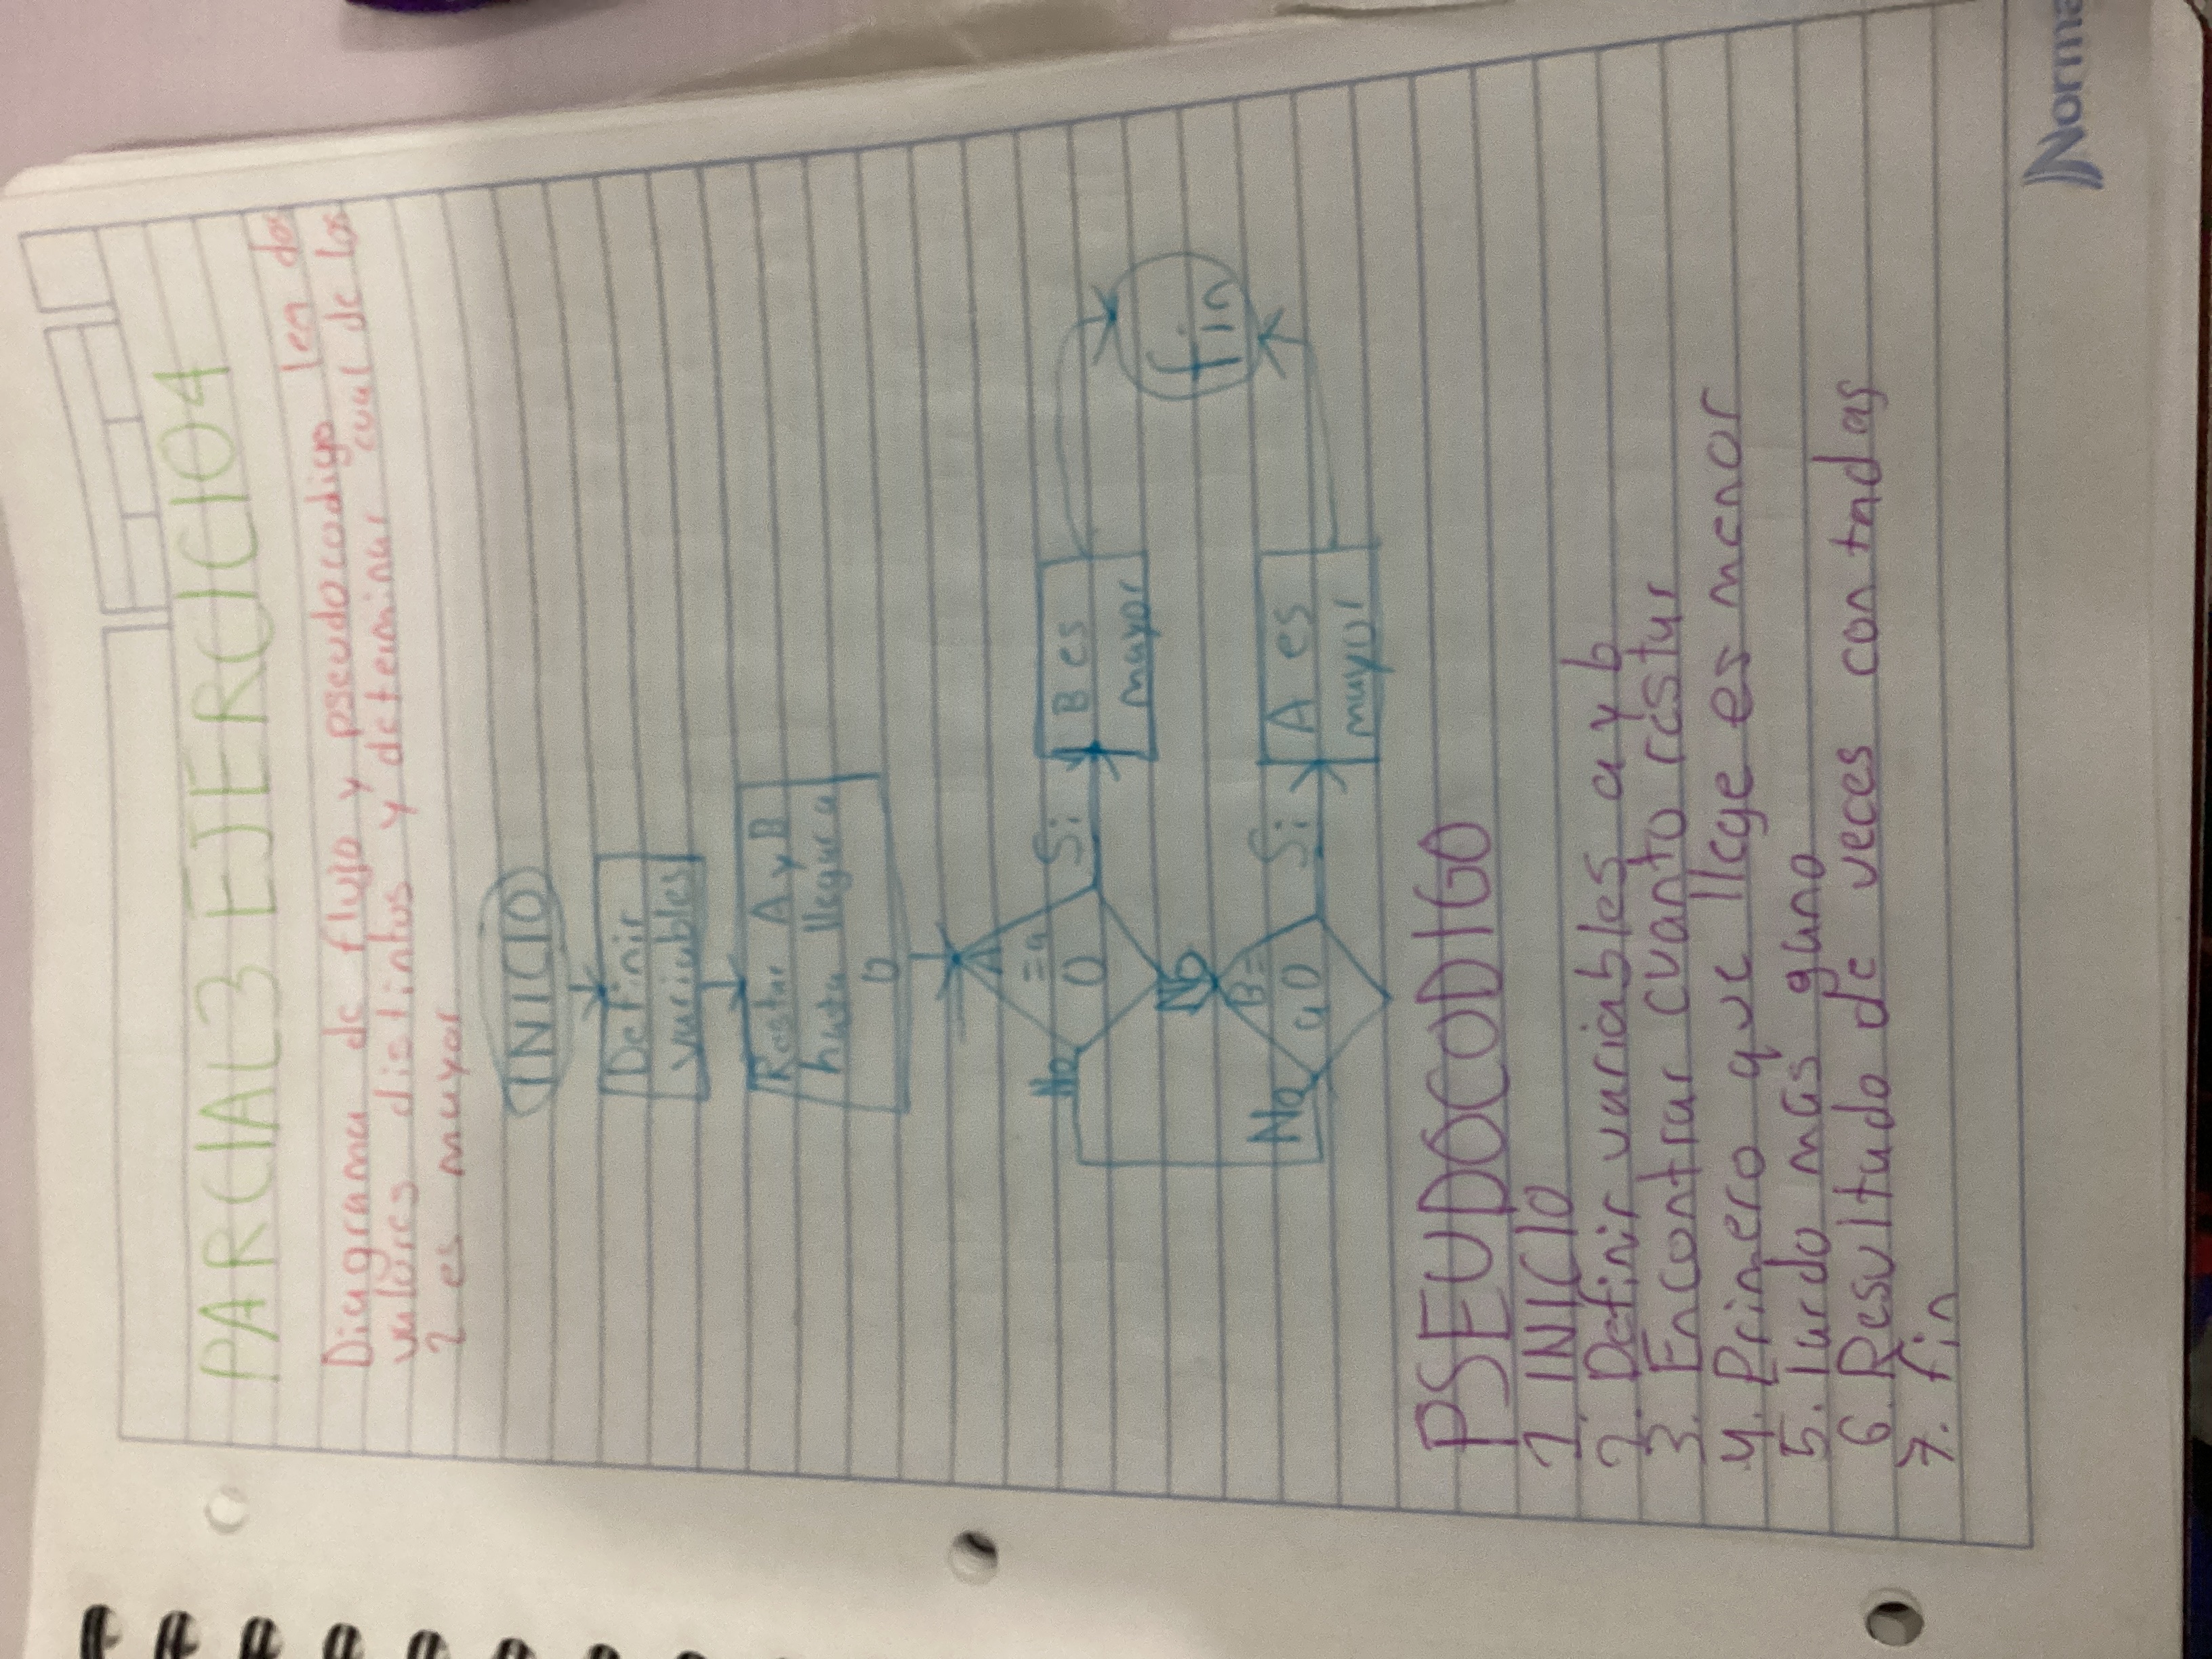 PARCIAL 3 EJERCICIO 4
Diagrama de flujo y pseudocodigo lea dos
valores distintos y determinar cual de los
2 es mayor
INICIO
Definir
variables
Restar A y B
hasta llegar a
0
A
= a
0
Si
B es
mayor
No
No
B =
a 0
Si
A es
mayor
No
fin
PSEUDOCODIGO
1 INICIO
2. Definir variables a y b
3. Encontrar cuanto restar
4. Primero que llege es menor
5. tardo mas gano
6. Resultado de veces contadas
7. fin
Norma